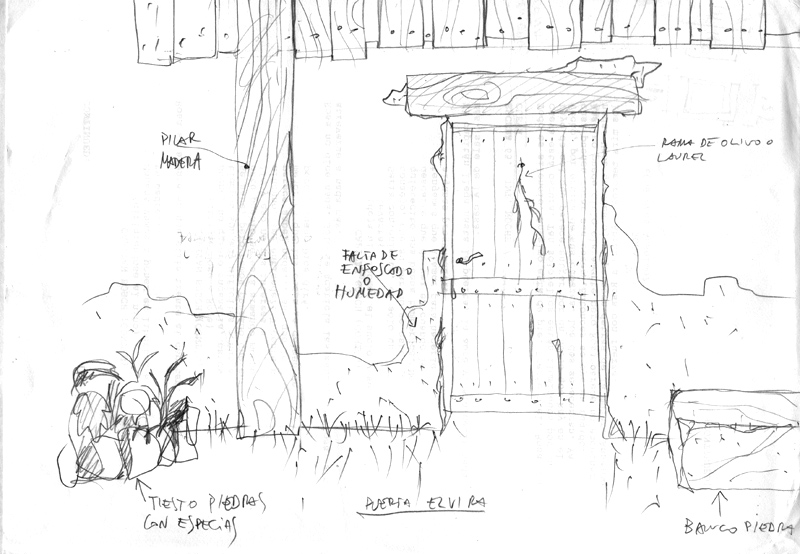 PILAR
MADERA
RAMA DE OLIVO O
LAUREL
FALTA DE
ENFOSCADO
O
HUMEDAD
TIESTO PIEDRAS
CON ESPECIAS
PUERTA ELVIRA
BANCO PIEDRA